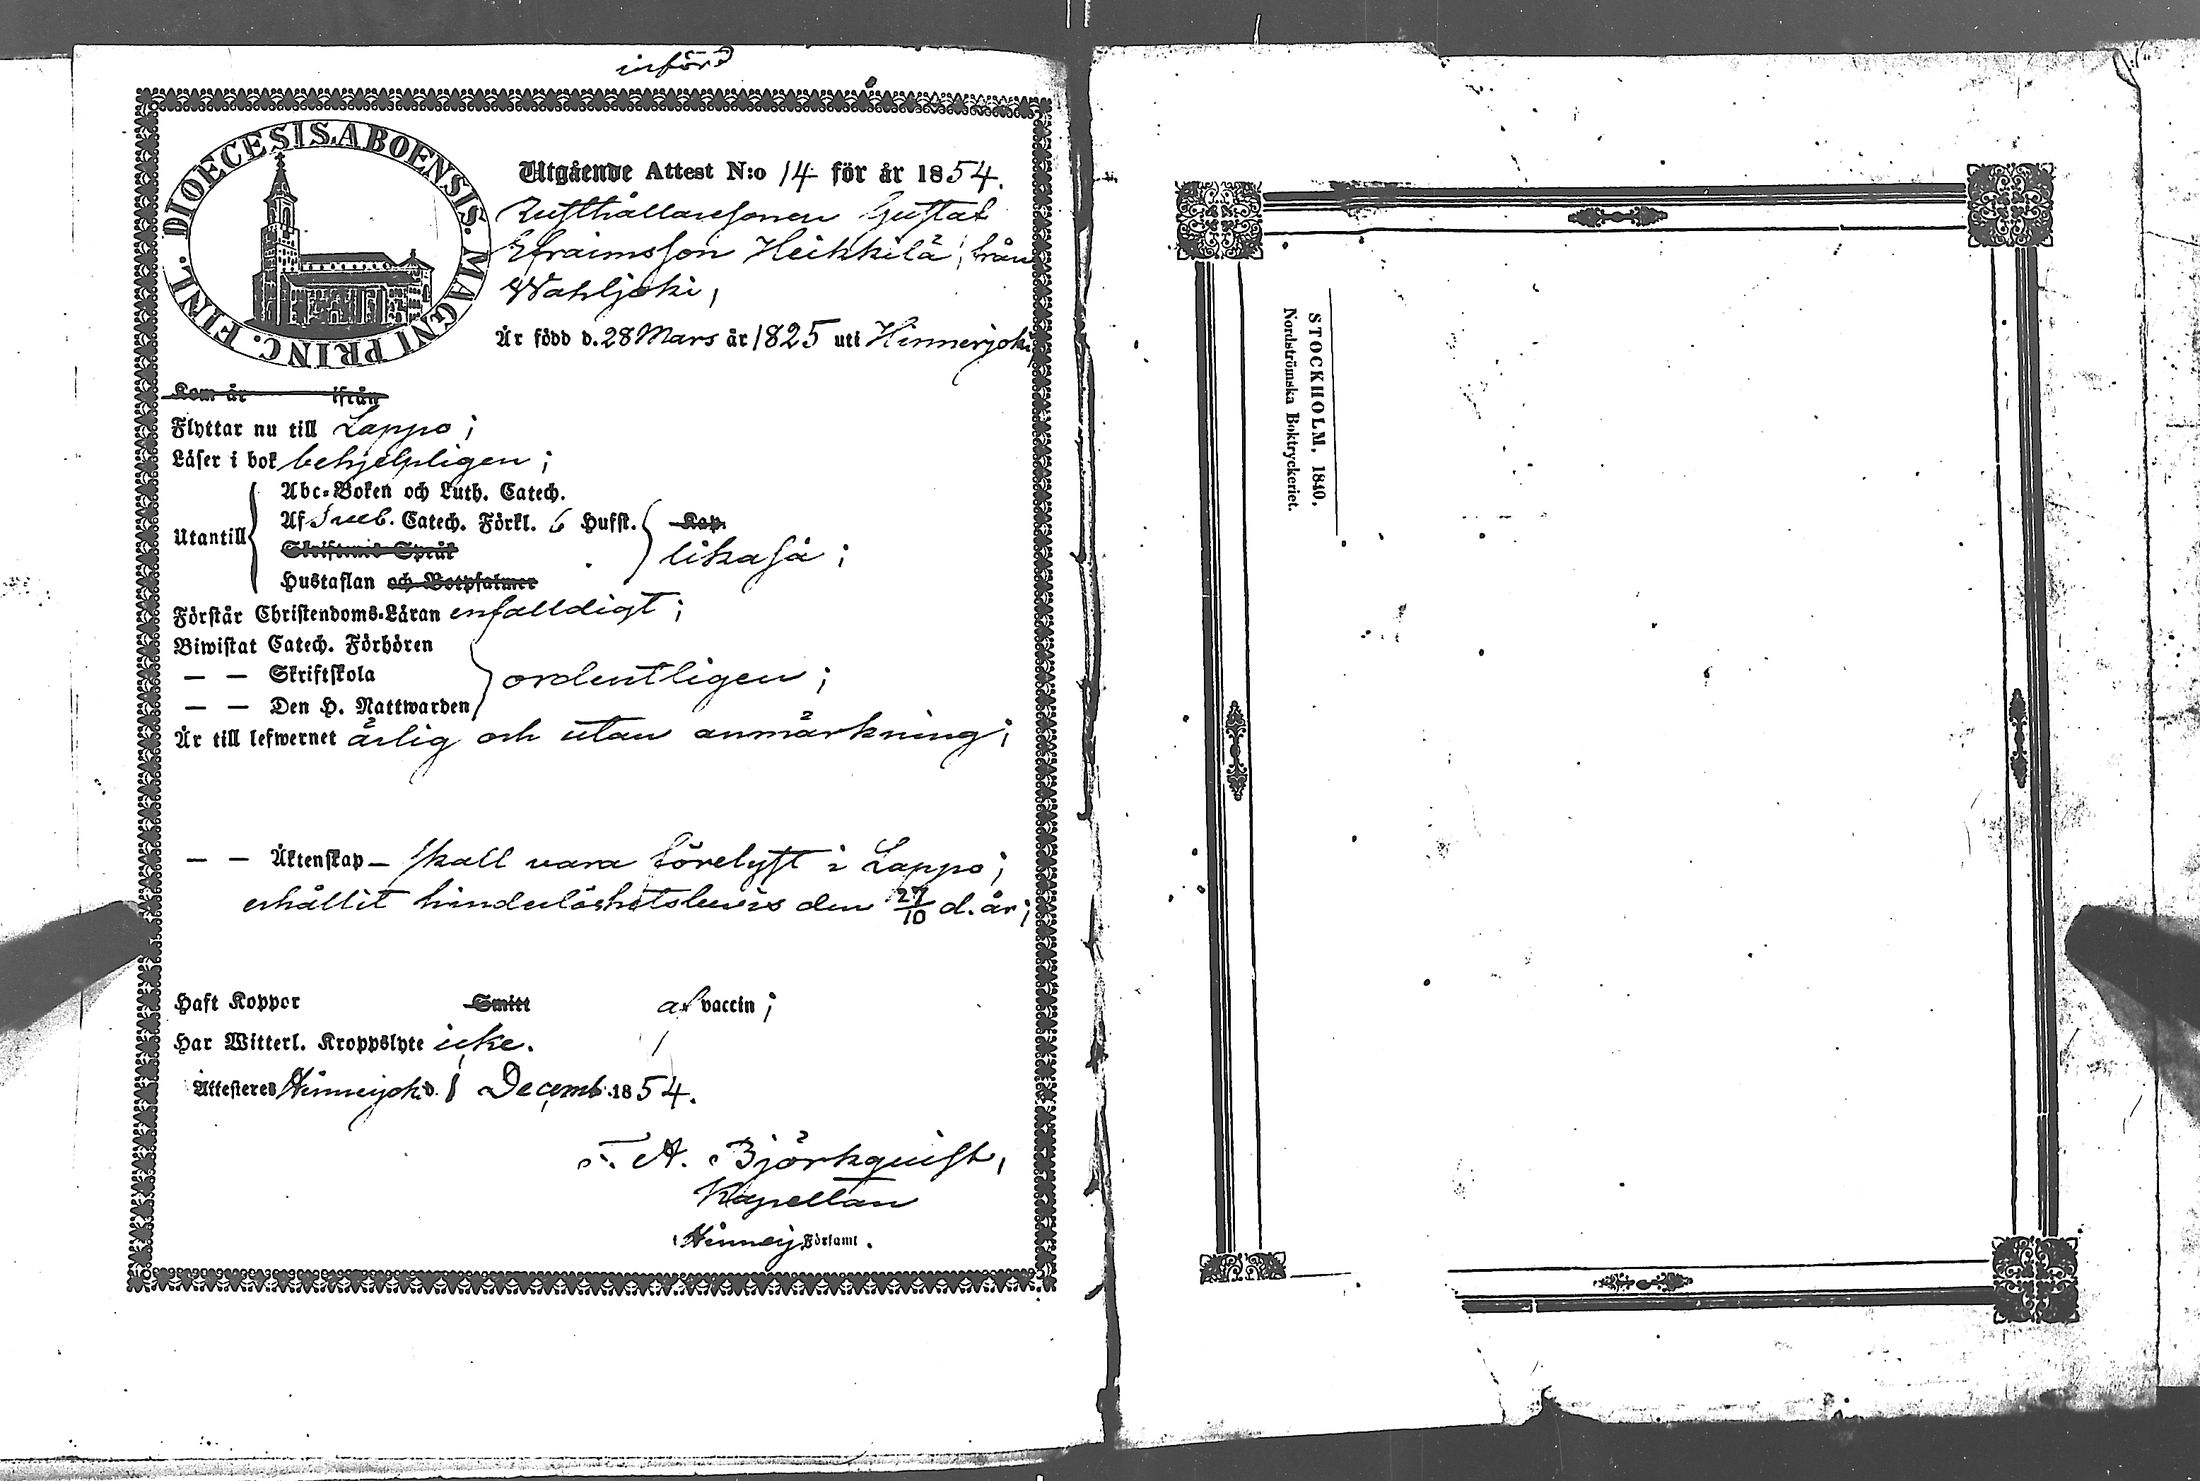 införd
DIOECESIS ABOENSIS. MAGNI PRINC. FINL.
Utgående Attest N:o 14 för år 1854.
Rusthållaresonen Gustaf
Efraimsson Heikkilä, från
Wahljoki,
Är född d. 28 Mars år 1825 uti Hinnerjoki
Kom år ifrån
Flyttar nu till Lappo;
Läser i bok behjelpligen;
Abc-Boken och Luth. Catech.
Af Sveb. Catech. Förkl. 6 Hufst. Kap.
Utantill
Skriftenes Språk likaså;
Hustaflan och Botpsalmer
Förstår Christendoms-Läran enfalldigt;
Biwistat Catech. Förhören
— — Skriftskola ordentligen;
— — Den H. Nattwarden
Är till lefwernet ärlig och utan anmärkning;
— — Äktenskap — skall vara förelyst i Lappo;
erhållit hinderlöshetsbevis den 27/10 d. år;
Haft Koppor Smitt af vaccin;
Har Witterl. Kroppslyte icke.
Attesteres Hinnerjoki d. 1 Decemb. 1854.
F. A. Björkquist,
Kapellan
i Hinnerj. Församl.
STOCKHOLM, 1840.
Nordströmska Boktryckeriet.